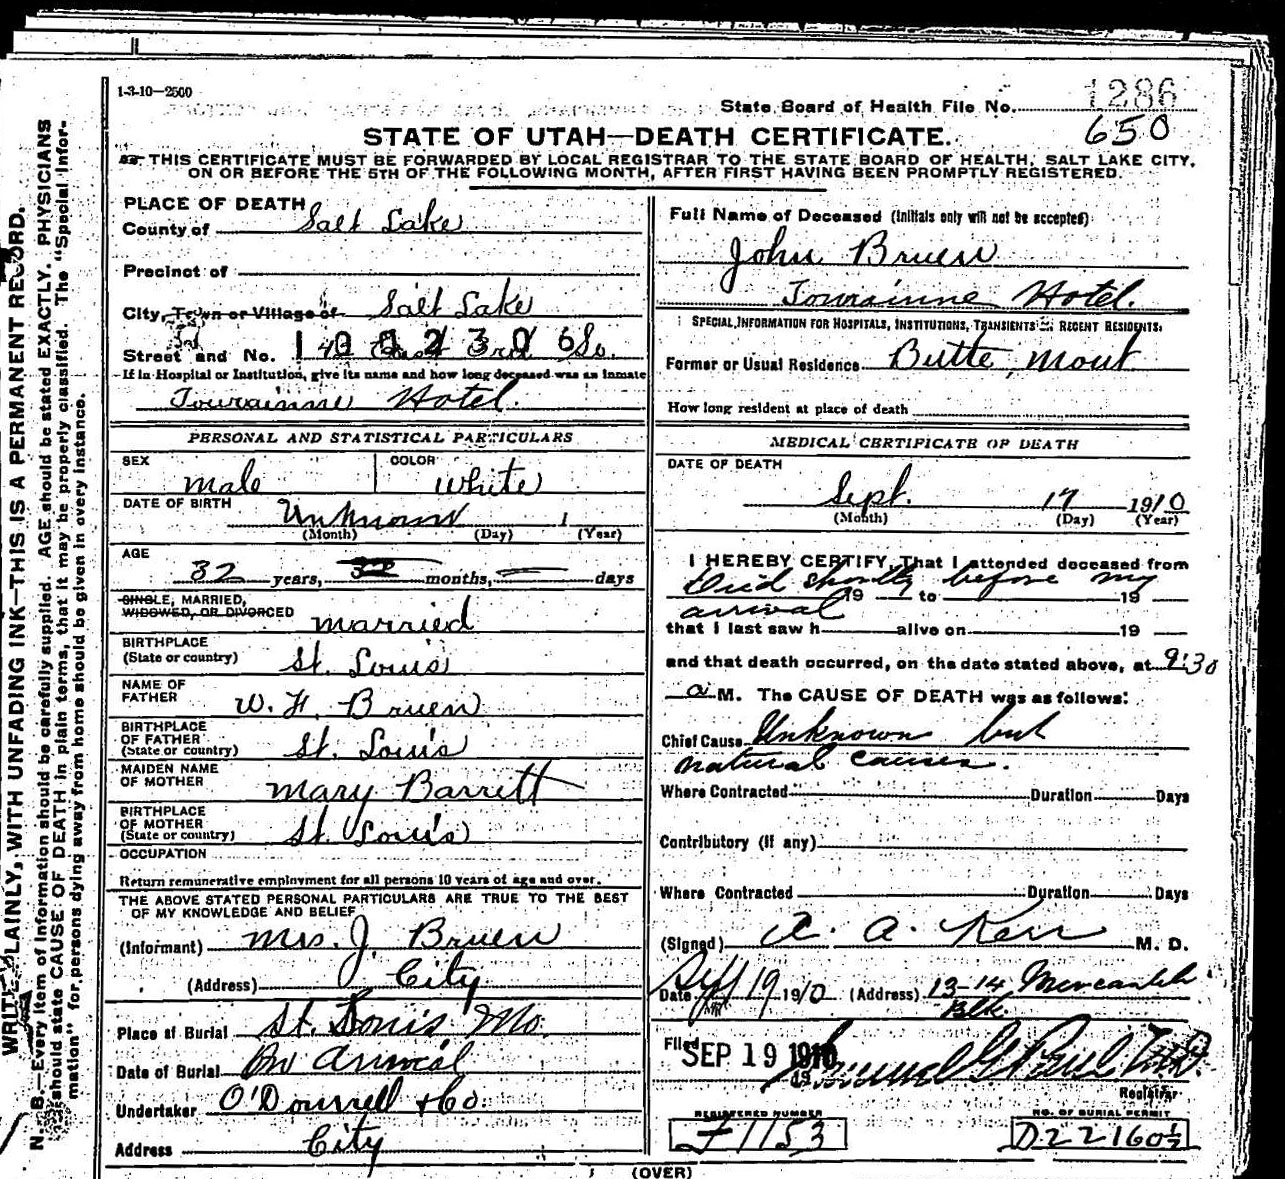 1-3-10—2500
State Board of Health File No. 1286
650
STATE OF UTAH—DEATH CERTIFICATE.
THIS CERTIFICATE MUST BE FORWARDED BY LOCAL REGISTRAR TO THE STATE BOARD OF HEALTH, SALT LAKE CITY,
ON OR BEFORE THE 5TH OF THE FOLLOWING MONTH, AFTER FIRST HAVING BEEN PROMPTLY REGISTERED.
WRITE PLAINLY, WITH UNFADING INK—THIS IS A PERMANENT RECORD.
N. B.—Every item of information should be carefully supplied. AGE should be stated EXACTLY. PHYSICIANS
should state CAUSE OF DEATH in plain terms, that it may be properly classified. The "Special Infor-
mation" for persons dying away from home should be given in every instance.
PLACE OF DEATH
County of Salt Lake
Precinct of
City, Town or Village of Salt Lake
Street and No. East 3rd So.
If in Hospital or Institution, give its name and how long deceased was an inmate
Tourainne Hotel.
PERSONAL AND STATISTICAL PARTICULARS
SEX male COLOR White
DATE OF BIRTH Unknown 1
(Month) (Day) (Year)
AGE
32 years, months, days
SINGLE, MARRIED,
WIDOWED, OR DIVORCED married
BIRTHPLACE
(State or country) St. Louis
NAME OF
FATHER W. H. Bruen
BIRTHPLACE
OF FATHER
(State or country) St. Louis
MAIDEN NAME
OF MOTHER Mary Barrett
BIRTHPLACE
OF MOTHER
(State or country) St. Louis
OCCUPATION
Return remunerative employment for all persons 10 years of age and over.
THE ABOVE STATED PERSONAL PARTICULARS ARE TRUE TO THE BEST
OF MY KNOWLEDGE AND BELIEF
(Informant) Mrs. J. Bruen
(Address) City
Place of Burial St. Louis Mo.
Date of Burial On Arrival
Undertaker O'Donnell & Co.
Address City
Full Name of Deceased (Initials only will not be accepted)
John Bruen
Tourainne Hotel.
SPECIAL INFORMATION FOR HOSPITALS, INSTITUTIONS, TRANSIENTS OR RECENT RESIDENTS.
Former or Usual Residence Butte, Mont
How long resident at place of death
MEDICAL CERTIFICATE OF DEATH
DATE OF DEATH
Sept. 17 1910
(Month) (Day) (Year)
I HEREBY CERTIFY, That I attended deceased from
Died shortly before my
19 to 19
arrival
that I last saw h alive on 19
and that death occurred, on the date stated above, at 9:30
a M. The CAUSE OF DEATH was as follows:
Chief Cause Unknown but
natural causes.
Where Contracted Duration Days
Contributory (if any)
Where Contracted Duration Days
(Signed) A. A. Kerr M. D.
Date Sept 19 1910 (Address) 13-14 Mercantile
Blk
Filed SEP 19 1910
Registrar
REGISTERED NUMBER
1153
NO. OF BURIAL PERMIT
D22160½
(OVER)